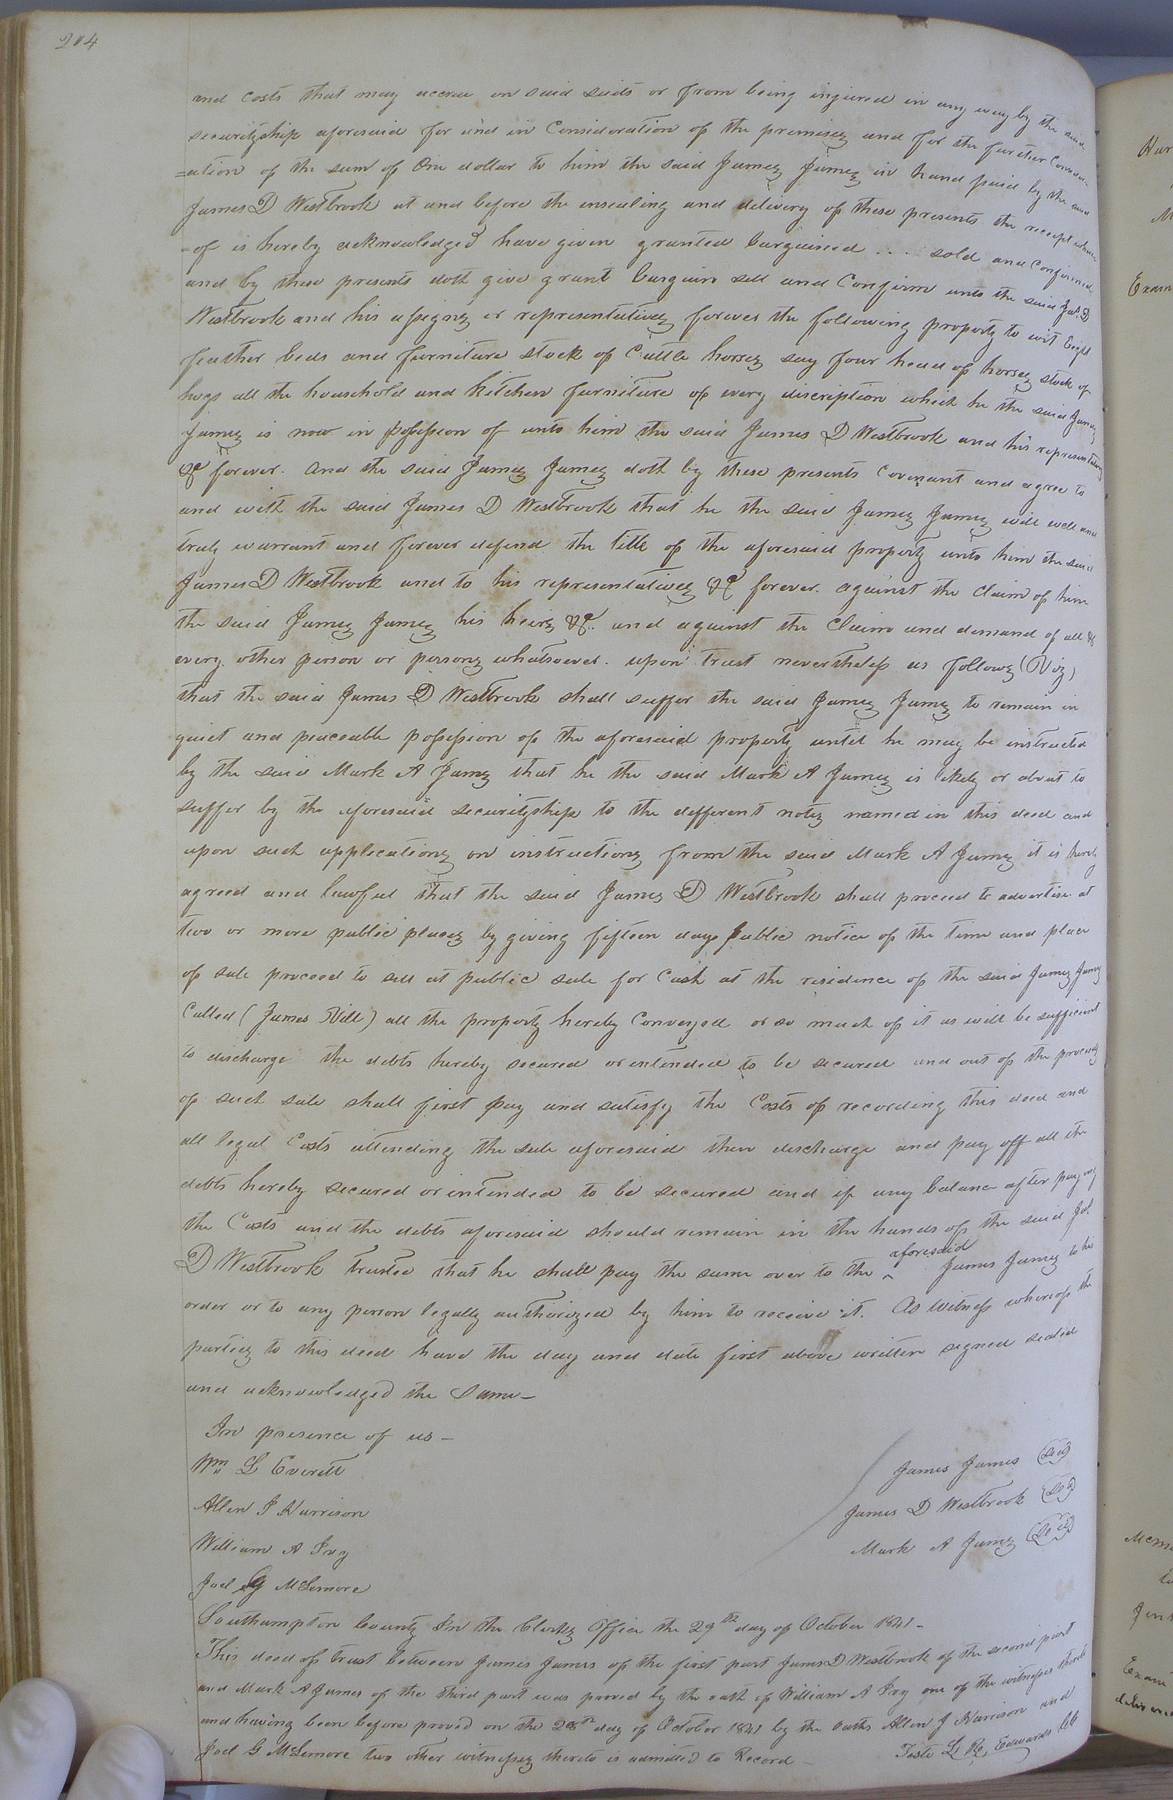 204
and costs that may accrue on said suits or from being injured in any way by the said
securityship aforesaid for and in Consideration of the premises and for the further Consider
=ation of the sum of One dollar to him the said James James in hand paid by the said
James D Westbrook at and before the ensealing and delivery of these presents the receipt where
=of is hereby acknowledged have given granted bargained .... sold and Confirmed
and by these presents doth give grant bargain sell and Confirm unto the said Jas. D
Westbrook and his assignes or representatives forever the following property to wit Eight
feather beds and furniture stock of Cattle horses say four head of horses stock of
hogs all the household and kitchen furniture of every discription which he the said James
James is now in possession of unto him the said James D Westbrook and his representatives
&c forever. and the said James James doth by these presents Covenant and agree to
and with the said James D Westbrook that he the said James James will well and
truly warrant and forever defend the title of the aforesaid property unto him the said
James D Westbrook and to his representatives &c forever. against the claim of him
the said James James his heirs &c. and against the Claim and demand of all &
every other person or persons whatsoever. upon trust nevertheless as follows (Viz)
that the said James D Westbrook shall suffer the said James James to remain in
quiet and peaceable possession of the aforesaid property until he may be instructed
by the said Mark A James that he the said Mark A James is likely or about to
suffer by the aforesaid securityship to the different notes named in this deed and
upon such applications or instructions from the said Mark A James it is hereby
agreed and lawful that the said James D Westbrook shall proceed to advertise at
two or more public places by giving fifteen days public notice of the time and place
of sale proceed to sell at public sale for Cash at the residence of the said James James
Called (James Vill) all the property hereby Conveyed or so much of it as will be sufficient
to discharge the debts hereby secured or intended to be secured and out of the proceeds
of such sale shall first pay and satisfy the Costs of recording this deed and
all legal Costs attending the sale aforesaid then discharge and pay off all the
debts hereby secured or intended to be secured and if any balance after paying
the Costs and the debts aforesaid should remain in the hands of the said Jas.
D Westbrook trustee that he shall pay the same over to the ^ aforesaid James James to his
order or to any person legally authorized by him to receive it. As Witness whereof the
parties to this deed have the day and date first above written signed sealed
and acknowledged the same—
In presence of us—
Wm L Everett
Allen J Harrison
William A Ivy
Joel G McLemore
James James (Seal)
James D Westbrook (Seal)
Mark A James (Seal)
Southampton County In the Clerks Office the 29th day of October 1841—
This deed of trust between James James of the first part James D Westbrook of the second part
and Mark A James of the third part was proved by the oath of William A Ivy one of the witnesses thereto
and having been before proved on the day of October 1841 by the oaths Allen J Harrison and
Joel G McLemore two other witnesses thereto is admitted to Record—
Teste L. R. Edwards CC